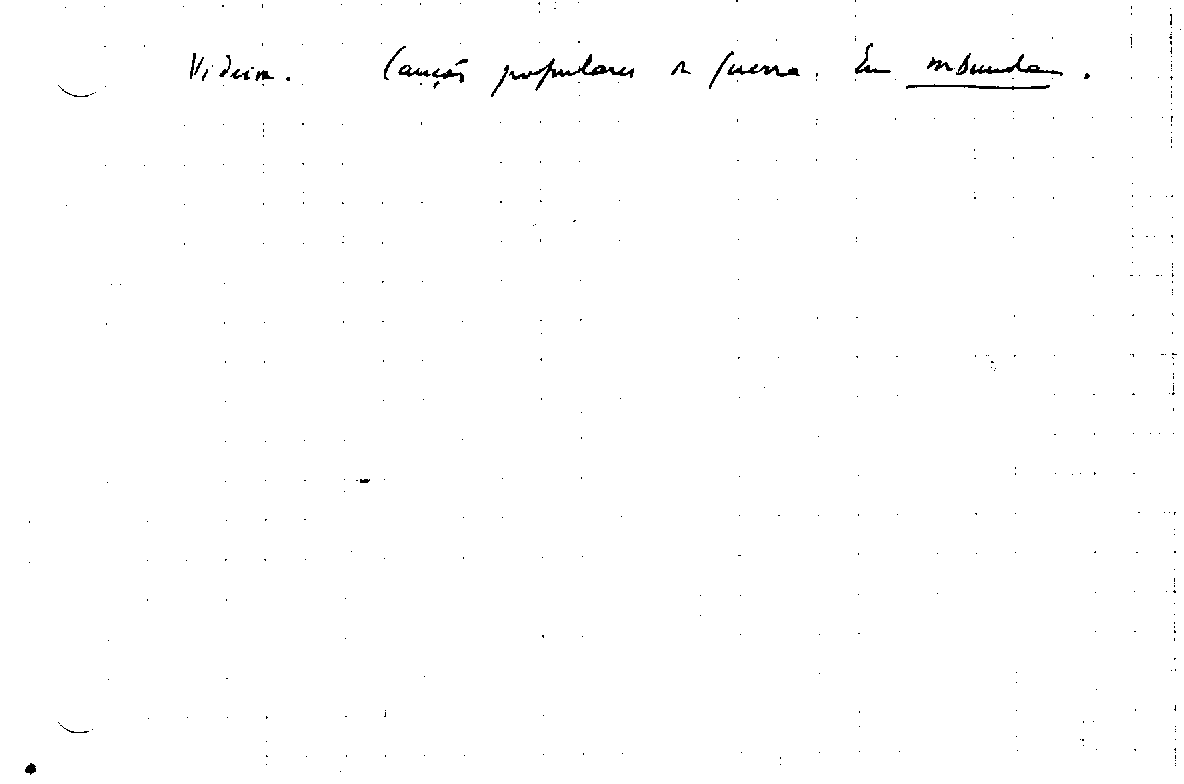 Videira. Canções populares de guerra. Em mbunda.